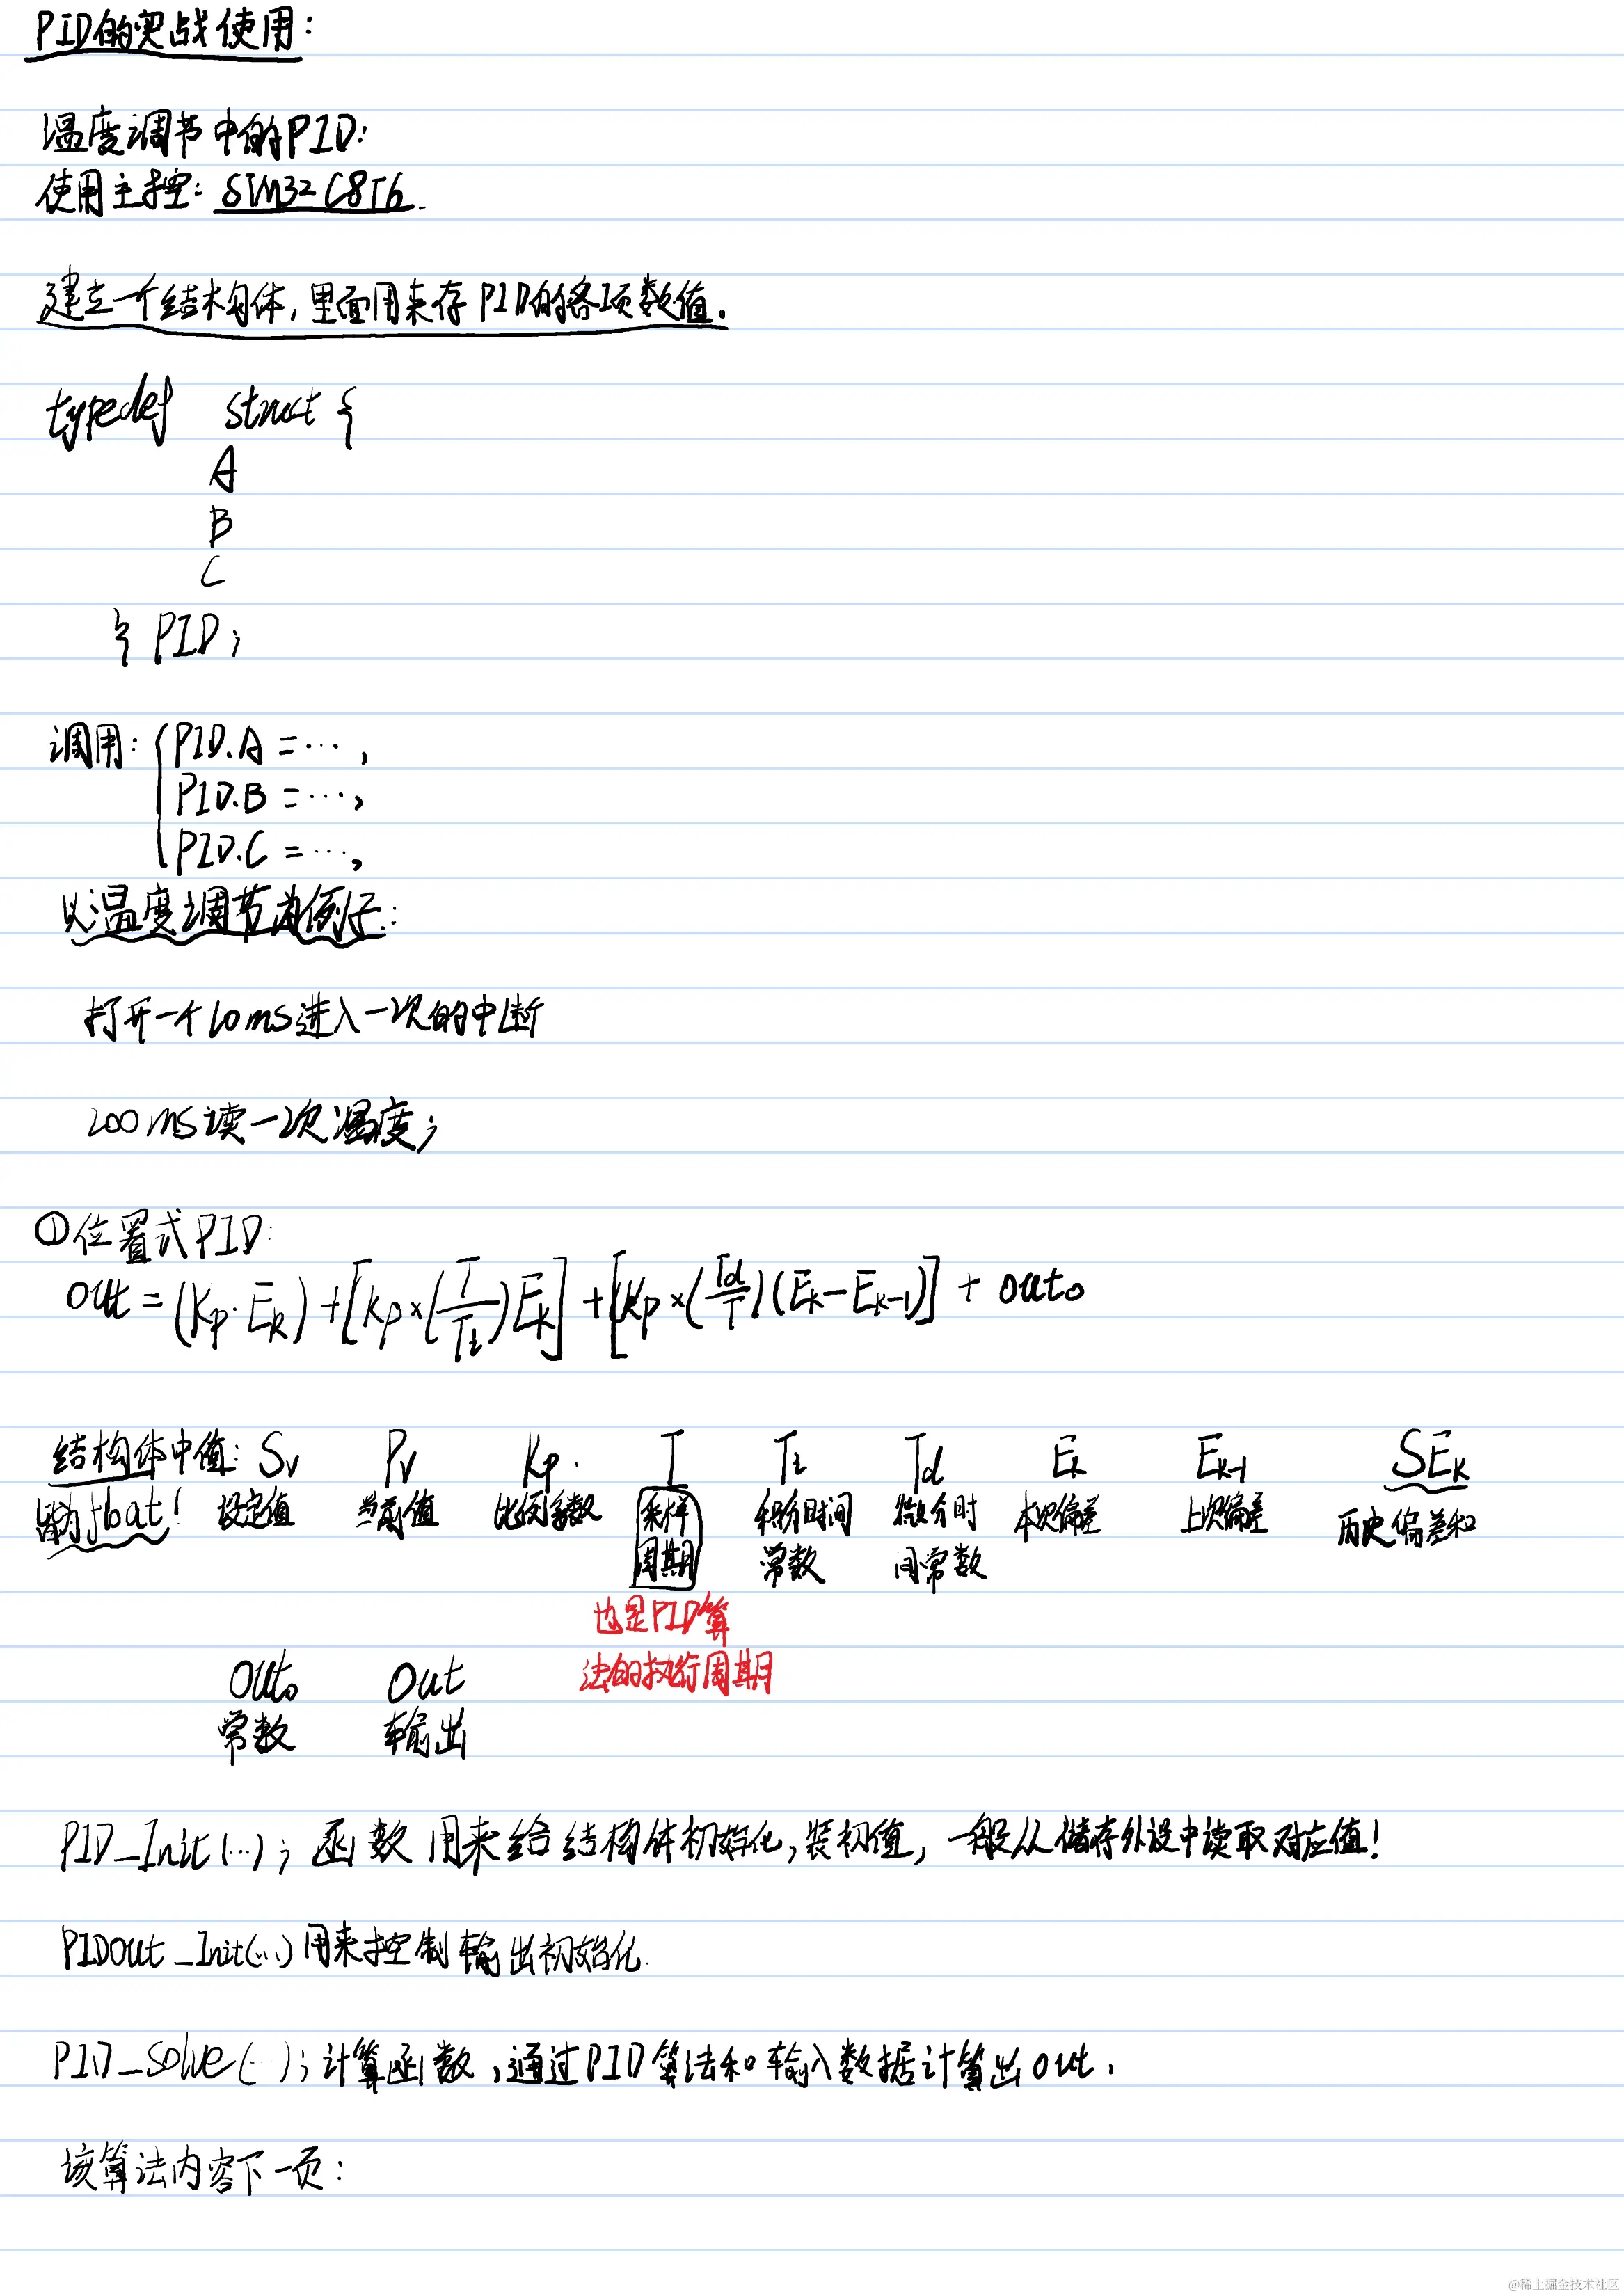 PID的实战使用:
温度调节中的PID:
使用主控: STM32C8T6.
建立一个结构体,里面用来存PID的各项数值。
typedef struct {
A
B
C
} PID;
调用: { PID.A = ⋯,
PID.B = ⋯,
PID.C = ⋯,
以温度调节为例子:
打开一个10ms进入一次的中断
200ms读一次温度;
①位置式PID:
out = (Kp·Ek) + [Kp×(T/Ti)Ek] + [Kp×(Td/T)(Ek-Ek-1)] + out0
结构体中值: Sv Pv Kp. T Ti Td Ek Ek-1 SEk
皆为float! 设定值 当前值 比例系数 采样周期 积分时间常数 微分时间常数 本次偏差 上次偏差 历史偏差和
也是PID算
法的执行周期
out0 out
常数 输出
PID_Init(⋯); 函数用来给结构体初始化,装初值,一般从储存外设中读取对应值!
PIDOut_Init(⋯)用来控制输出初始化.
PID_solve(⋯); 计算函数,通过PID算法和输入数据计算出out.
该算法内容下一页:
@稀土掘金技术社区